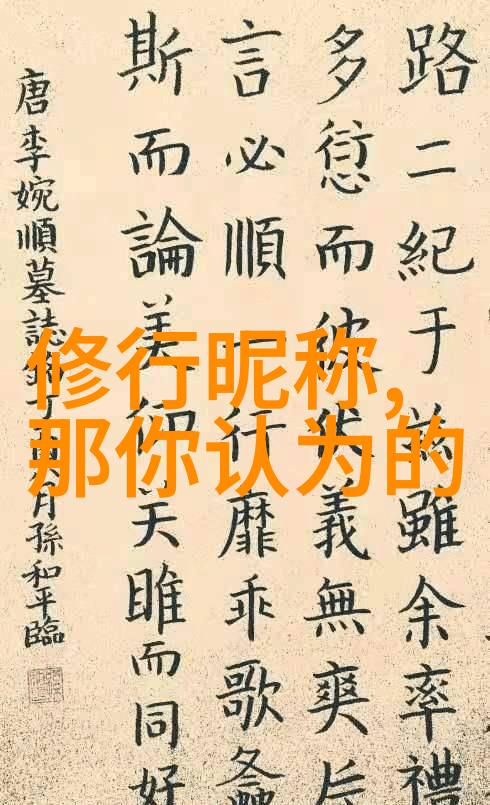 路二紀于兹雖余率禮
多愆而彼伏義無爽
言必順一行靡乖歌螽
斯而論美仰关雎而同好
唐李婉順墓誌銘丁酉月孫和平臨
修行昵称，
那你认为的